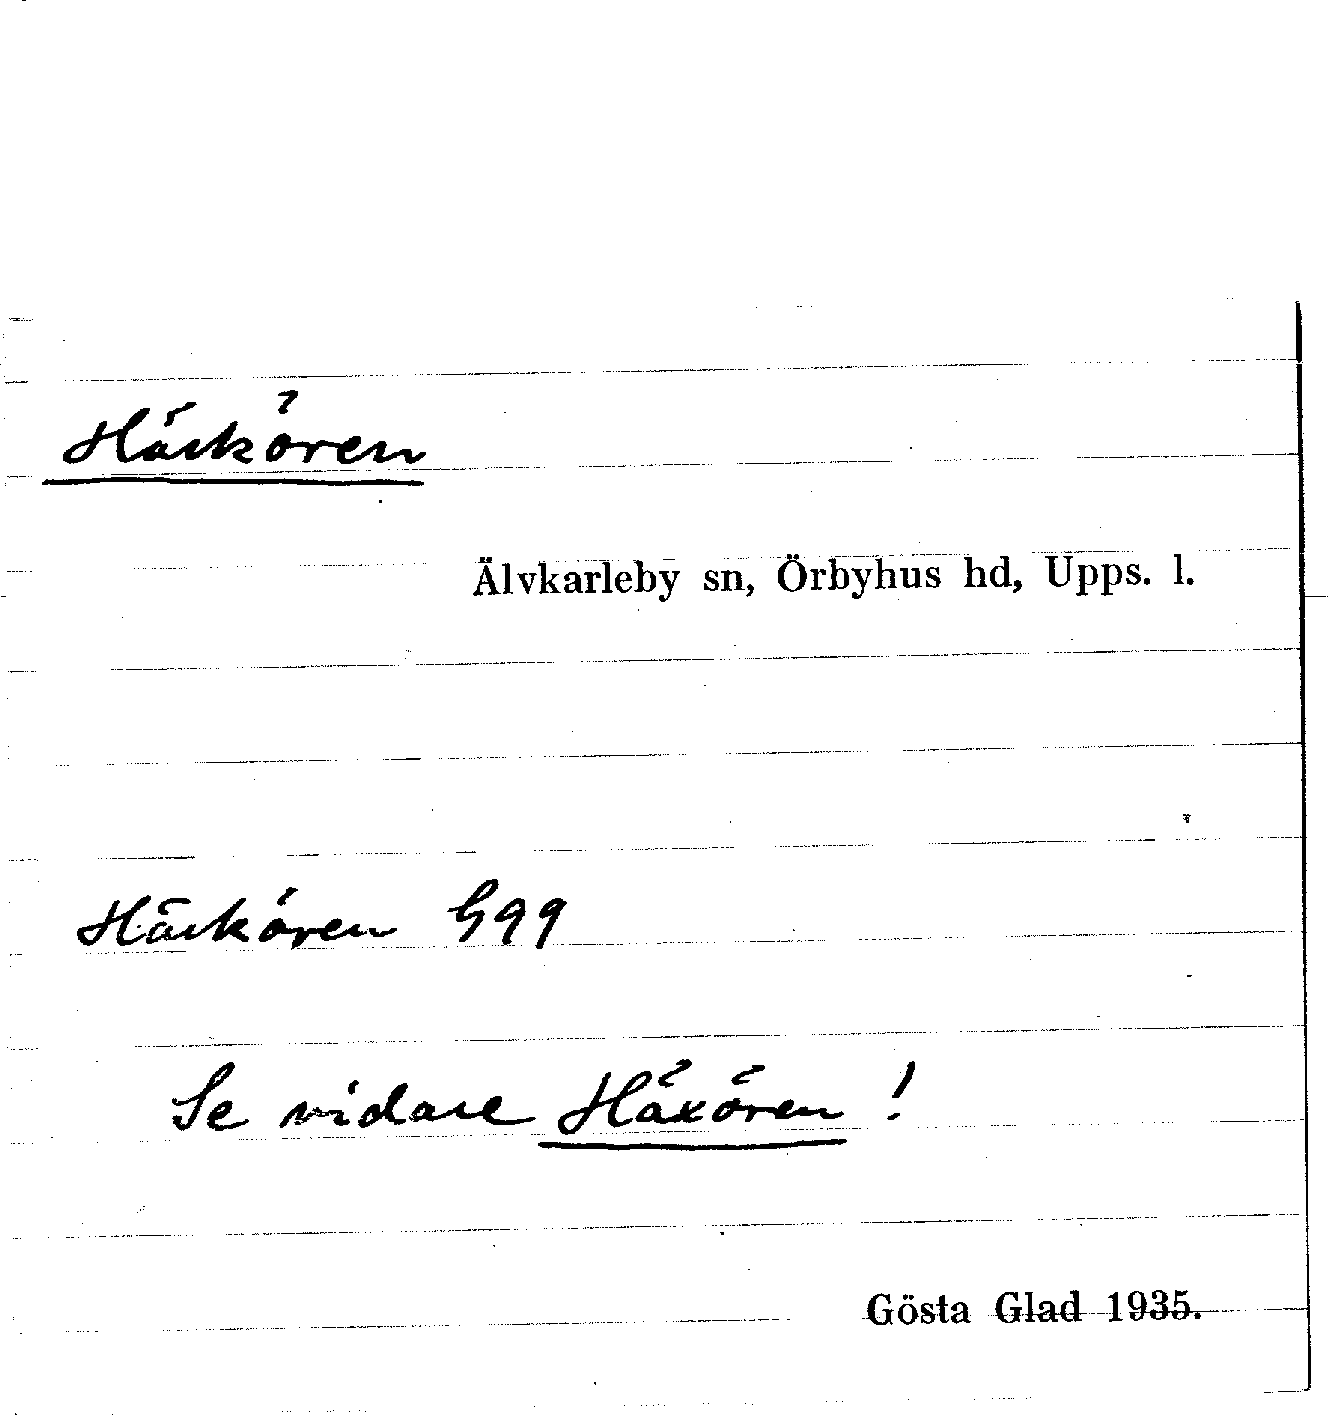 Häckören
Älvkarleby sn, Örbyhus hd, Upps. l.
Häckören
Se vidare Häxören !
Gösta Glad 1935.